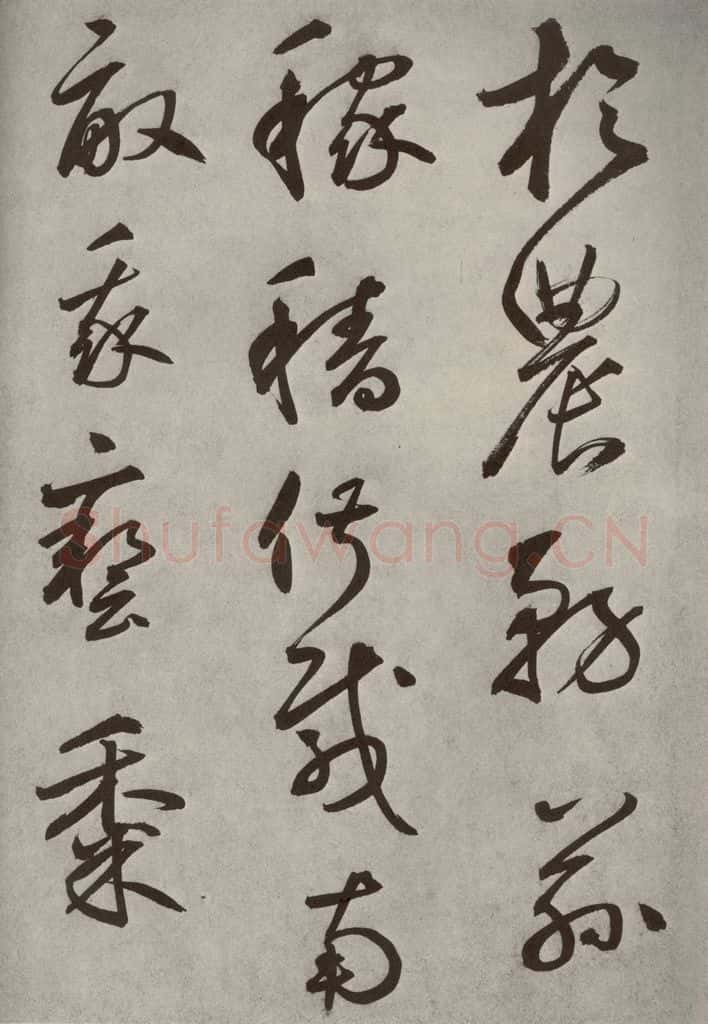 於農務茲
稼穡俶載南
畝我藝黍
Shufawang.CN